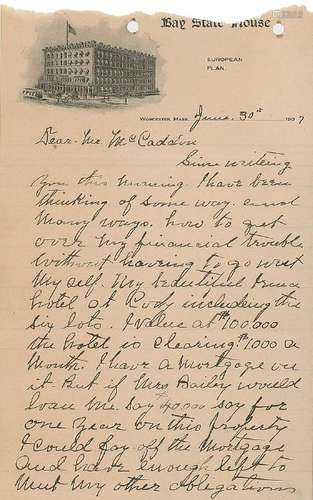 Bay State House
EUROPEAN
PLAN.
WORCESTER, MASS. June 30st 1907
Dear Mr. McCaddon
Since writing
you this morning I have been
thinking of some way and
many ways how to get
over my financial trouble
without having to go west
my self. my beautiful Irma
hotel at Cody including the
six lots. I value at $100.000
the hotel is clearing $1,000 a
month. I have a mortgage on
it But if Mrs Bailey would
loan me say $40000 say for
one year on this property
I could pay off the mortgage
and have enough left to
meet my other obligations